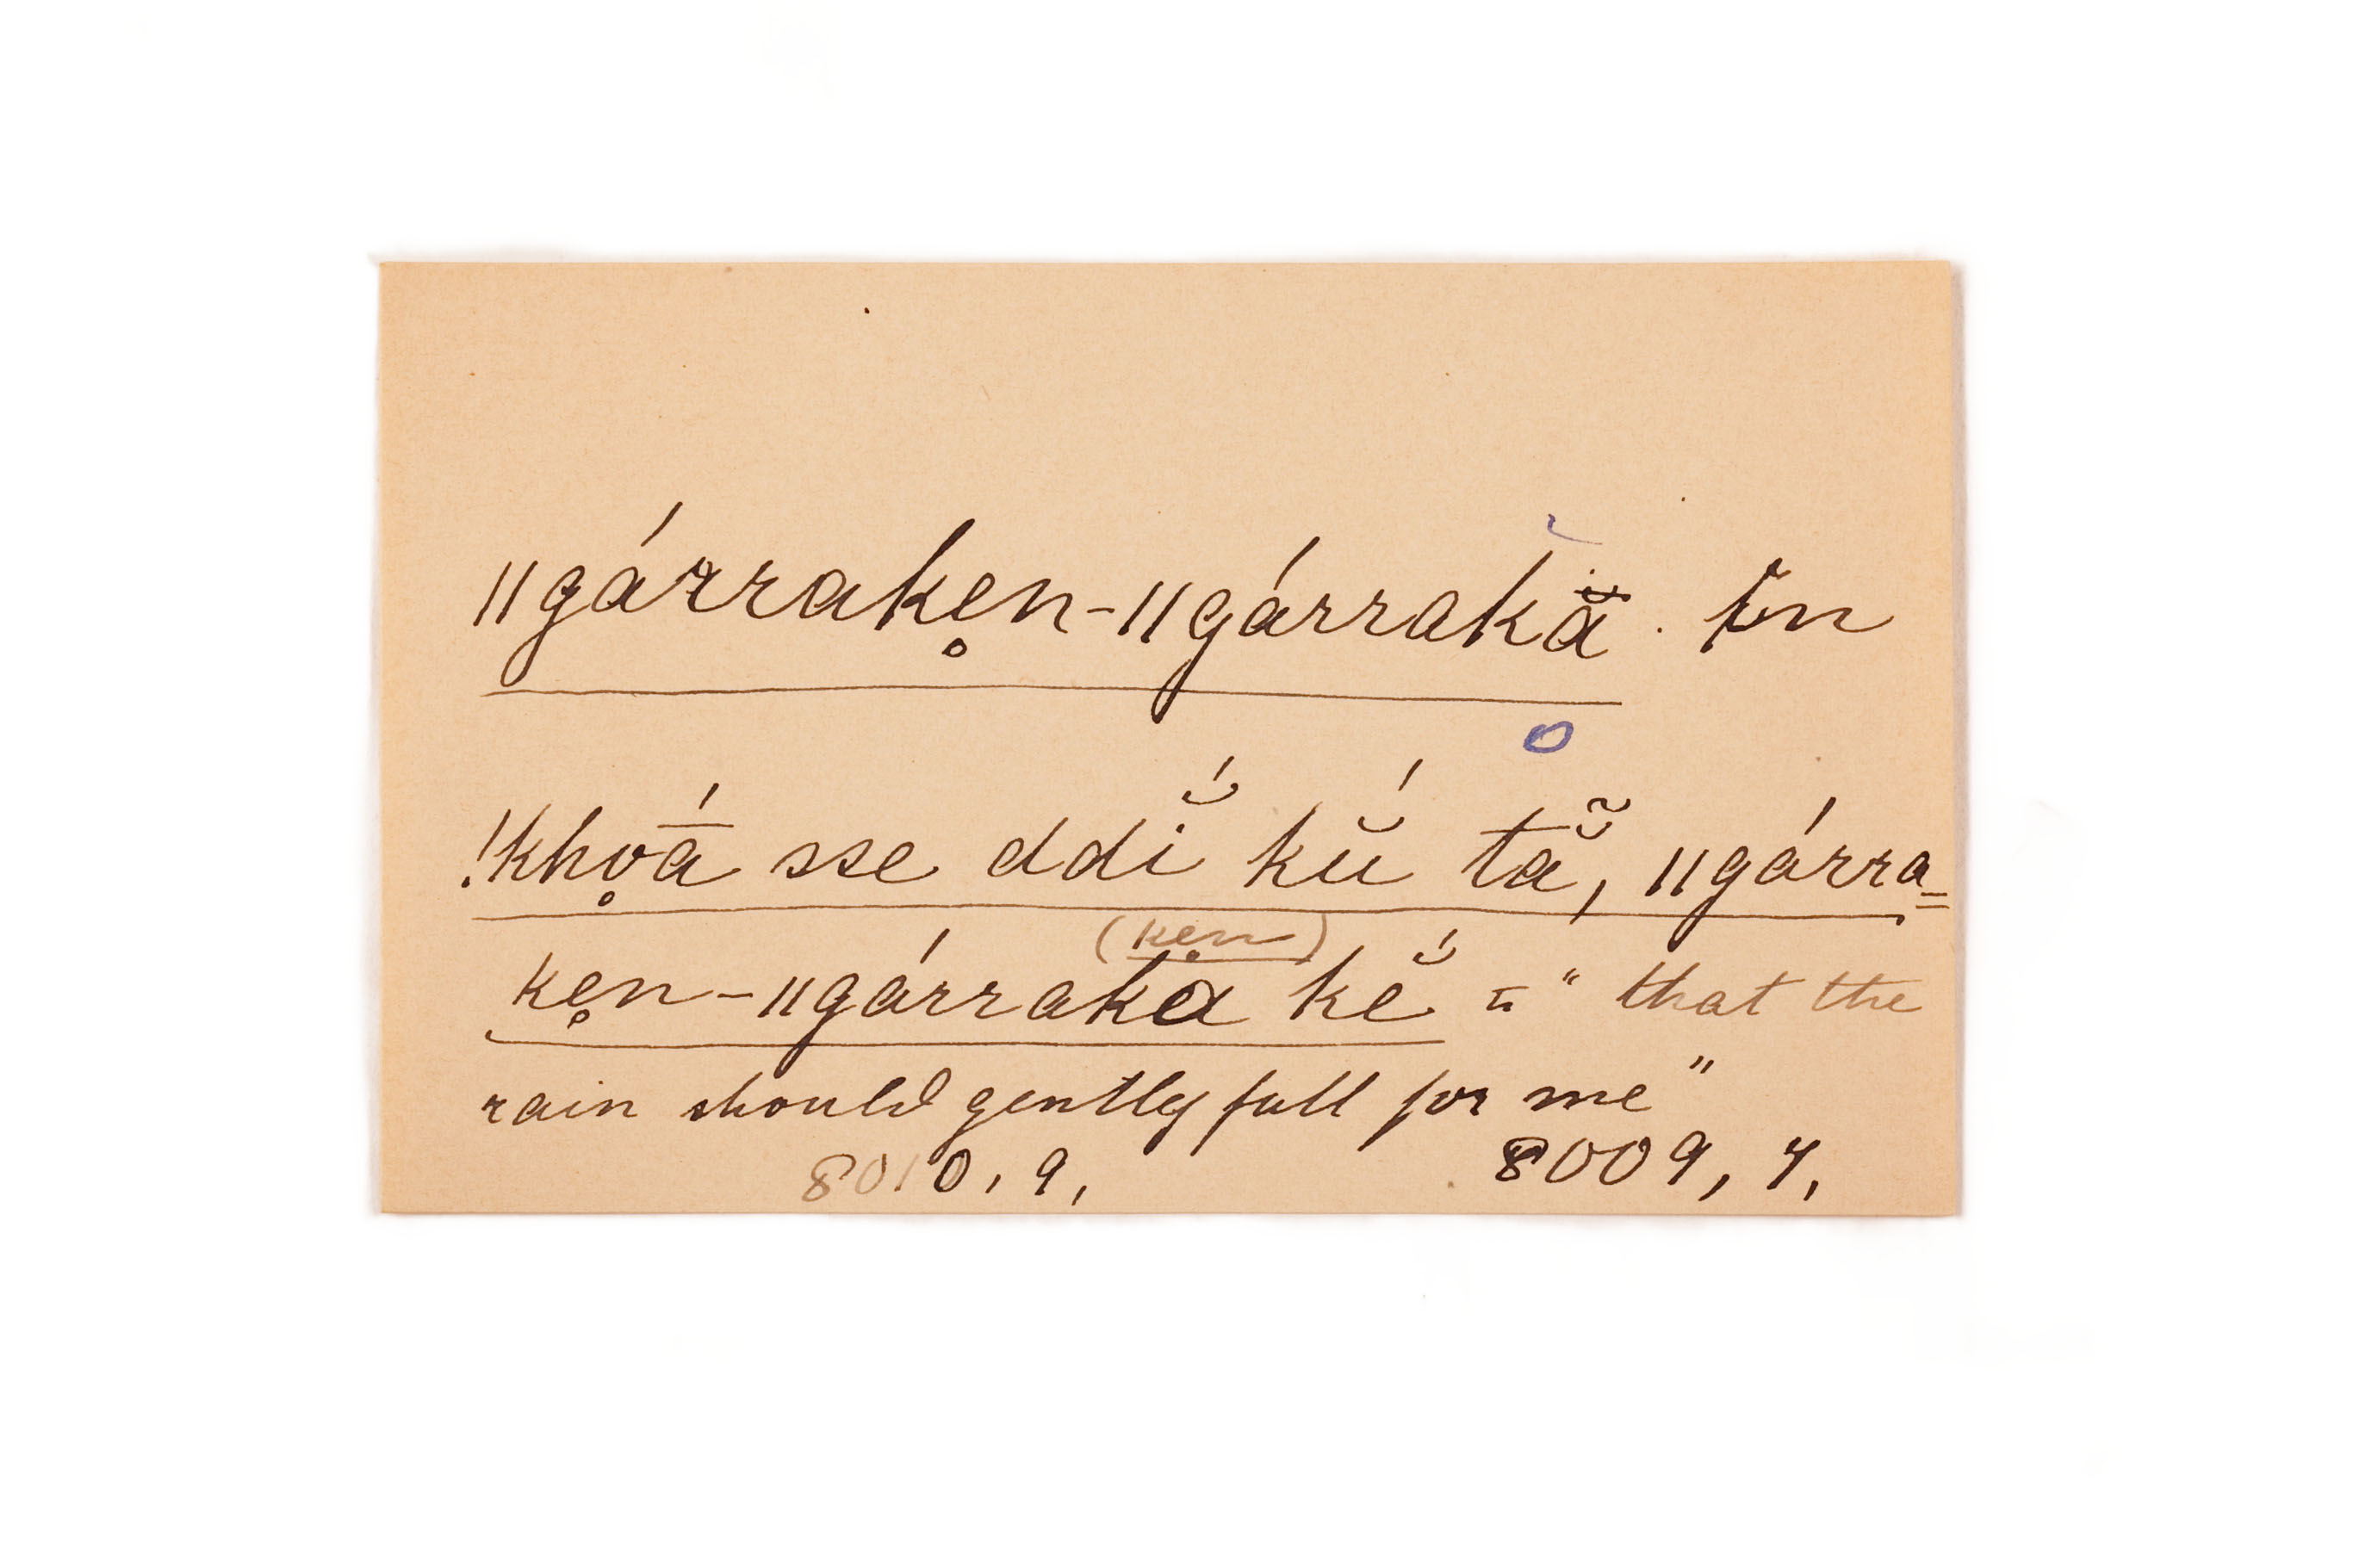 ǁgárrake̥n-ǁgárrakă . in
!kho̥ā́ sse ddĭ́ kŭ́ tẵ, ǁgárra=
(ke̥n)
ke̥n-ǁgárraka kĕ́ = " that the
rain should gently fall for me "
8010, 9, 8009, 7,